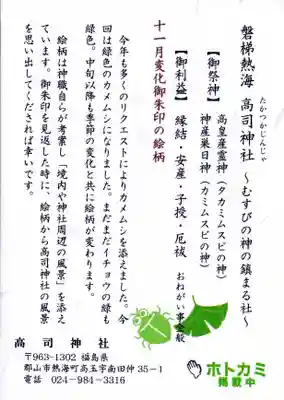 磐梯熱海 高司神社 ～むすびの神の鎮まる社～
たかつかじんじゃ
【御祭神】 高皇産霊神（タカミムスビの神）
神産巣日神（カミムスビの神）
【御利益】 縁結・安産・子授・厄祓 おねがい事全般
十一月変化御朱印の絵柄
今年も多くのリクエストによりカメムシを添えました。今
回は緑色のカメムシになりました。まだまだイチョウの緑も
緑色。中旬以降も季節の変化と共に絵柄が変わります。
絵柄は神職自らが考案し「境内や神社周辺の風景」を添え
ています。御朱印を見返した時に、絵柄から高司神社の風景
を思い出してくだされば幸いです。
高司神社
〒963-1302 福島県
郡山市熱海町高玉字南田仲35-1
電話 024-984-3316
ホトカミ
掲載中